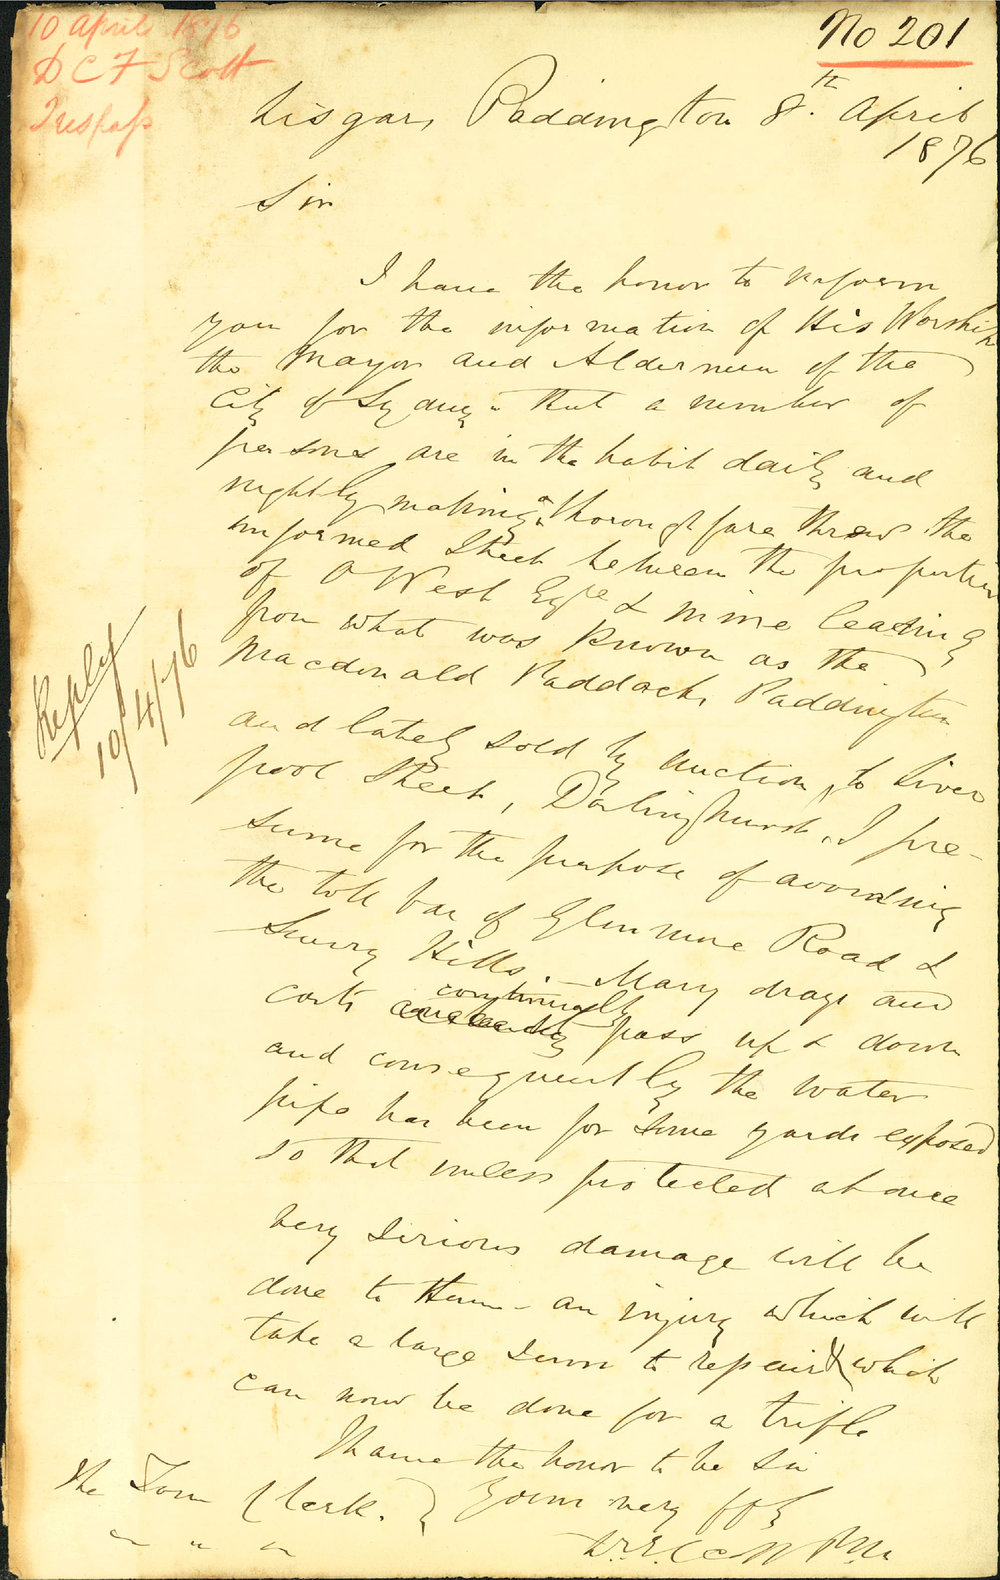 10 April 1876
D C F Scott
Trespass
No 201
Lisgar, Paddington 8th April
1876
Sir
I have the honor to inform
you for the information of His Worship
the Mayor and Aldermen of the
City of Sydney - that a number of
persons are in the habit daily and
nightly making a thoroughfare threw the
unformed Street between the properties
of O West Esqre & mine leading
from what was known as the
Macdonald Paddock, Paddington
and lately sold by auction, to Liver
pool Street, Darlinghurst, I pre-
sume for the purpose of avoiding
the toll bar of Glenmore Road &
Surry Hills. - Many drays and
carts continually pass up & down
and consequently the water
pipe has been for some yards exposed
so that unless protected at once
very serious damage will be
done to them - an injury which will
take a large sum to repair & which
can now be done for a trifle
I have the honor to be Sir
Your very
The Town Clerk. }
" " "
Scott P.M.
Reply
10/4/76